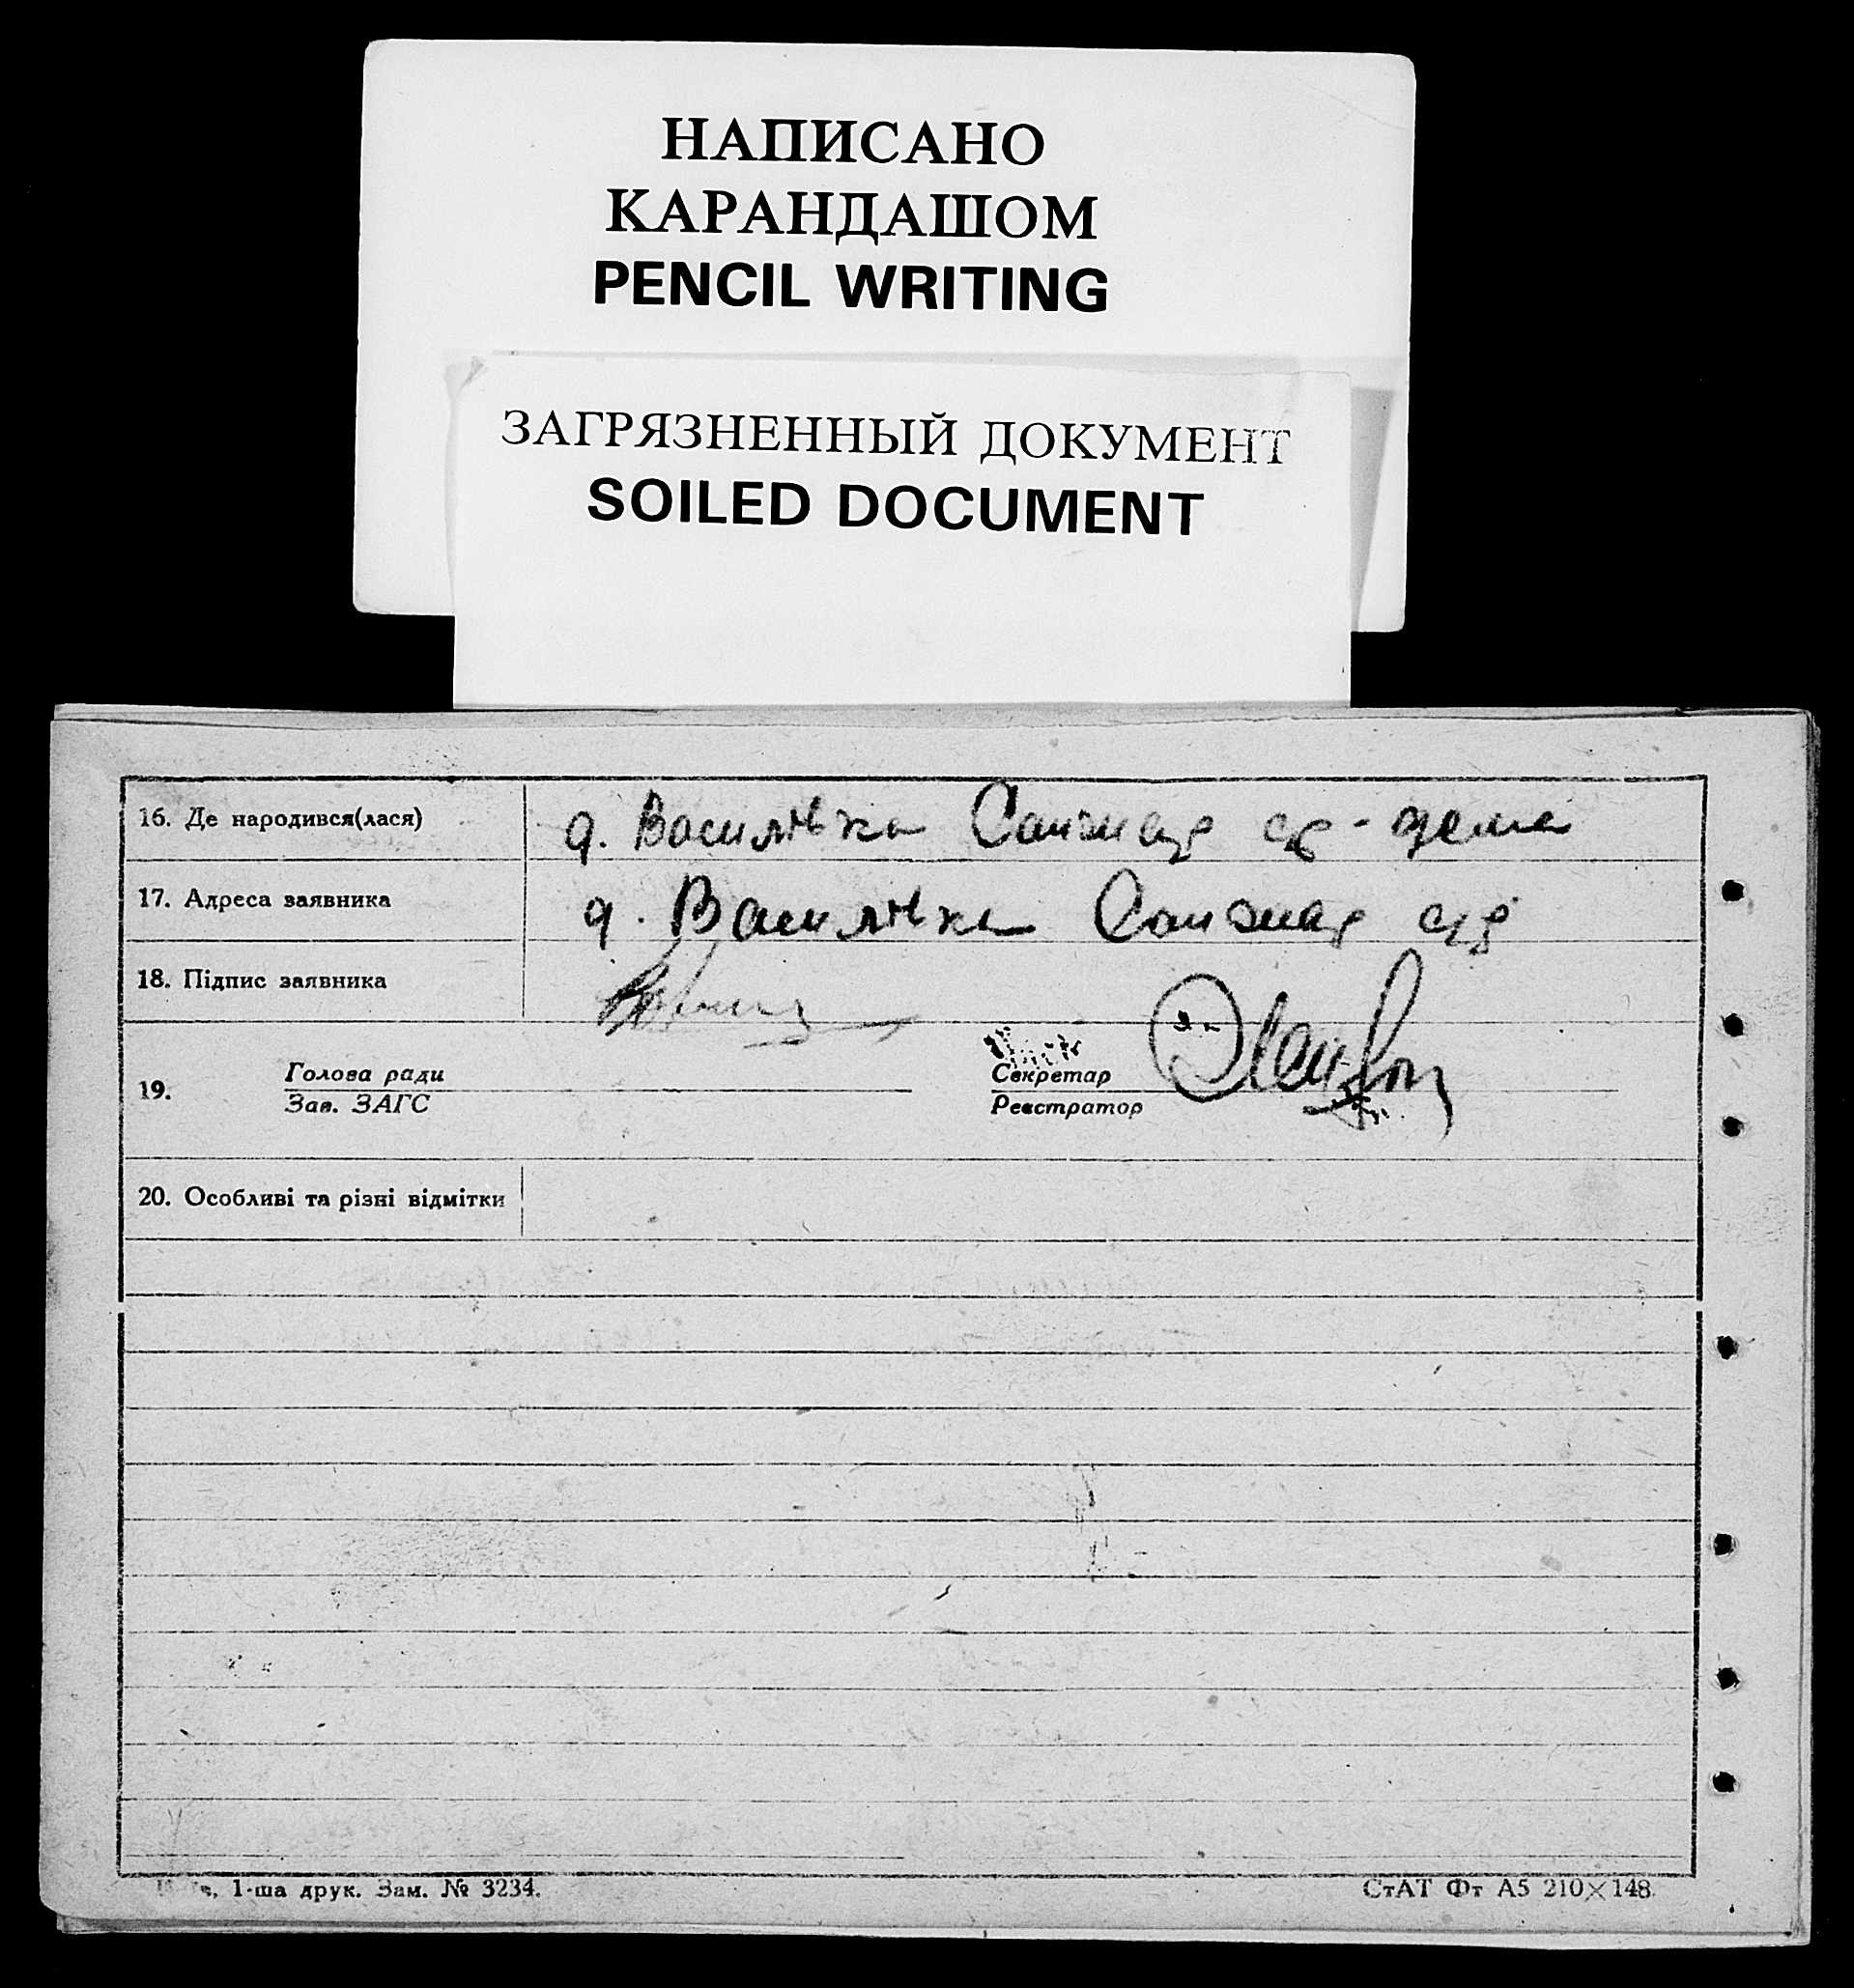 НАПИСАНО
КАРАНДАШОМ
PENCIL WRITING
ЗАГРЯЗНЕННЫЙ ДОКУМЕНТ
SOILED DOCUMENT
16. Де народився(лася) д. Василівка
17. Адреса заявника д. Василівка
18. Підпис заявника
19. Голова ради Секретар
Зав. ЗАГС Реєстратор
20. Особливі та різні відмітки
1-ша друк. Зам. № 3234.
СтАТ Фт А5 210×148.